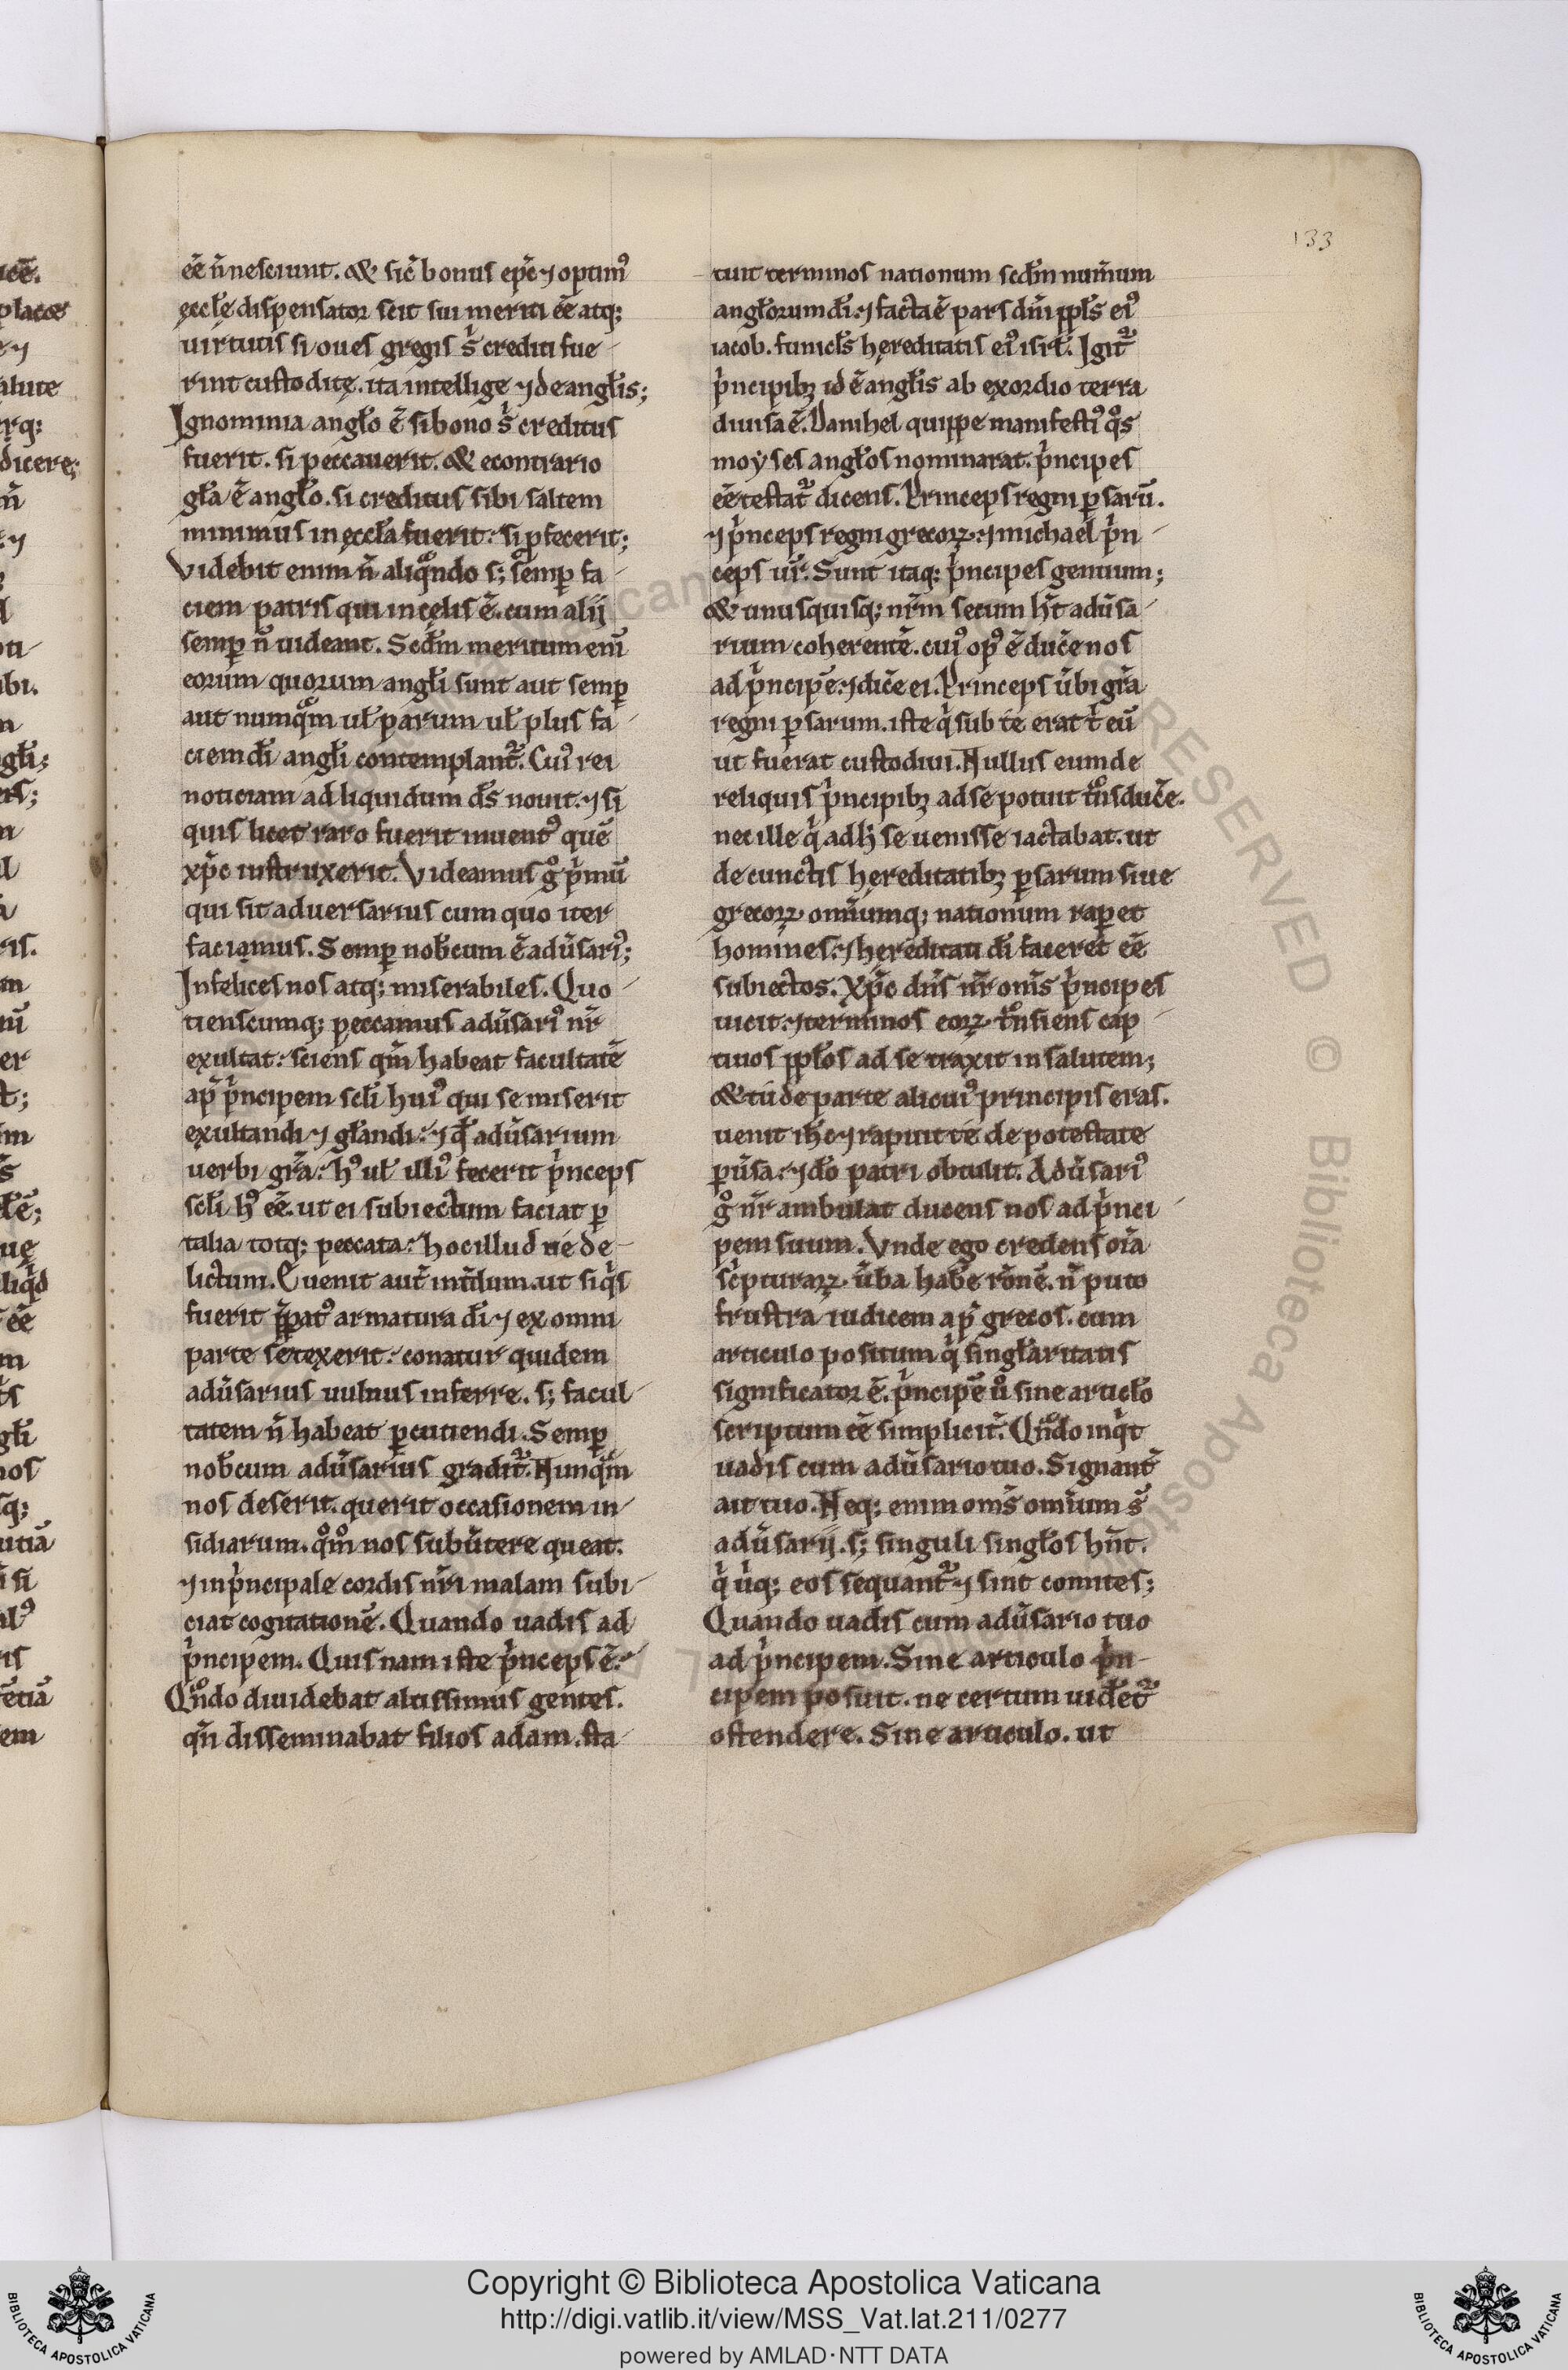 133
ēē n̄ nesciunt. & sic̄ bonus ep̄c ⁊ optim᾽
ęccłę dispensator scit sui meriti ēē atq;
uirtutis si oues gregis s̓ crediti fue-
rint custoditę. ita intellige ⁊ de angłis;
Ignominia angło ē si bono s̓ creditus
fuerit. si peccauerit. & econtrario
gła ē angło. si creditus sibi saltem
minimus in ęccła fuerit: si ꝓfecerit;
Videbit enim n̄ aliqͦndo s; semꝑ fa-
ciem patris qui in cęlis ē. cum alij
semꝑ n̄ uideant. Scdm̄ meritum enī
eorum quorum angłi sunt aut semꝑ
aut numqͦm uł parum uł plus fa-
ciem dī angłi contemplant᷑. Cui᾽ rei
noticiam ad liquidum d̄s nouit. ⁊ si
quis licet raro fuerit inuent᾽ quē
xp̄c instruxerit. Videamus gͦ p̓mū
qui sit aduersarius cum quo iter
faciamus. Semꝑ nob̄cum ē adūsari᾽;
Infelices nos atq; miserabiles. Quo-
tienscumq; peccamus adūsari᾽ nr̄
exultat: sciens qm̄ habeat facultatē
ap̄ p̓ncipem scłi hui᾽ qui se miserit
exultandi ⁊ głandi: ⁊ qđ adūsarium
uerbi gr̄a: h᾽ uł illi᾽ fecerit p̓nceps
scłi h᾽ ēē. ut ei subiectum faciat ꝑ
talia totq; peccata: hoc illud ue de-
lictum. Euenit aut̄ int̄dum. ut siq̓s
fuerit p̄parat᾽ armatura dī ⁊ ex omni
parte se texerit: conatur quidem
adūsarius uulnus inferre. s; facul-
tatem n̄ habeat ꝑcutiendi. Semꝑ
nob̄cum adūsarius gradit᷑. Nunqͣm
nos deserit. querit occasionem in-
sidiarum. qͦm̊ nos subūtere queat.
⁊ in p̓ncipale cordis nr̄i malam subi-
ciat cogitationē. Quando uadis ad
p̓ncipem. Quis nam iste p̓nceps ē:
Qn̊do diuidebat altissimus gentes.
qn̄ disseminabat filios adam. sta-
tuit terminos nationum scdm̄ num̄um
angłorum dī: ⁊ facta ē pars dn̄i ppłs ei᾽
iacob. funicłs hęreditatis ei᾽ isrł. Igit᷑
p̓ncipibꝫ id ē angłis ab exordio terra
diuisa ē. Danihel quippe manifesti᾽ qͦs
moyses angłos nominarat. p̓ncipes
ēē testat᷑ dicens. Princeps regni ꝑsarū.
⁊ p̓nceps regni grecoꝝ: ⁊ michael p̓n-
ceps ur̄. Sunt itaq; p̓ncipes gentium;
& unusquisq; nr̄m secum ht̄ adūsa-
rium coherentē. cui᾽ op᾽ ē duc̄e nos
ad p̓ncipē: ⁊ dic̄e ei. Princeps ūbi gr̄a
regni ꝑsarum. iste q̓ sub te erat t̓ eū
ut fuerat custodiui. Nullus eum de
reliquis p̓ncipibꝫ ad se potuit tn̊sduc̄e.
nec ille q̓ ad h̓ se uenisse iactabat. ut
de cunctis hęreditatibꝫ ꝑsarum siue
grecoꝝ omīumq; nationum raꝑet
homines: ⁊ hereditati dī faceret ēē
subiectos. Xp̄c dn̄s nr̄ om̄s p̓ncipes
uicit: ⁊ terminos eoꝝ tn̊siens cap-
tiuos ppłos ad se traxit in salutem;
& tu de parte alicui᾽ principis eras.
uenit ih̄c ⁊ rapuit te de potestate
ꝑūsa: ⁊ dō patri obtulit. Adūsari᾽
gͦ nr̄ ambulat ducens nos ad p̓nci-
pem suum. Vnde ego credens oīa
sc̓pturaꝝ ūba hab̄e rōnē. n̄ puto
frustra iudicem ap̄ grecos. cum
articulo positum q̓ singłaritatis
significator ē. p̓ncipē ūͦ sine articło
scriptum ēē simplicit̄. Qn̊do inq̓t
uadis cum adūsario tuo. Signant̄
ait tuo. Neq; enim om̄s omīum s̄
adūsarij. s; singuli singłos hn̄t.
q̓ ūq; eos sequant᷑ ⁊ sint comites;
Quando uadis cum adūsario tuo
ad p̓ncipem. Sine articulo p̓n-
cipem posuit. ne certum uiđet᷑
ostendere. Sine articulo. ut
Copyright © Biblioteca Apostolica Vaticana
http://digi.vatlib.it/view/MSS_Vat.lat.211/0277
powered by AMLAD·NTT DATA